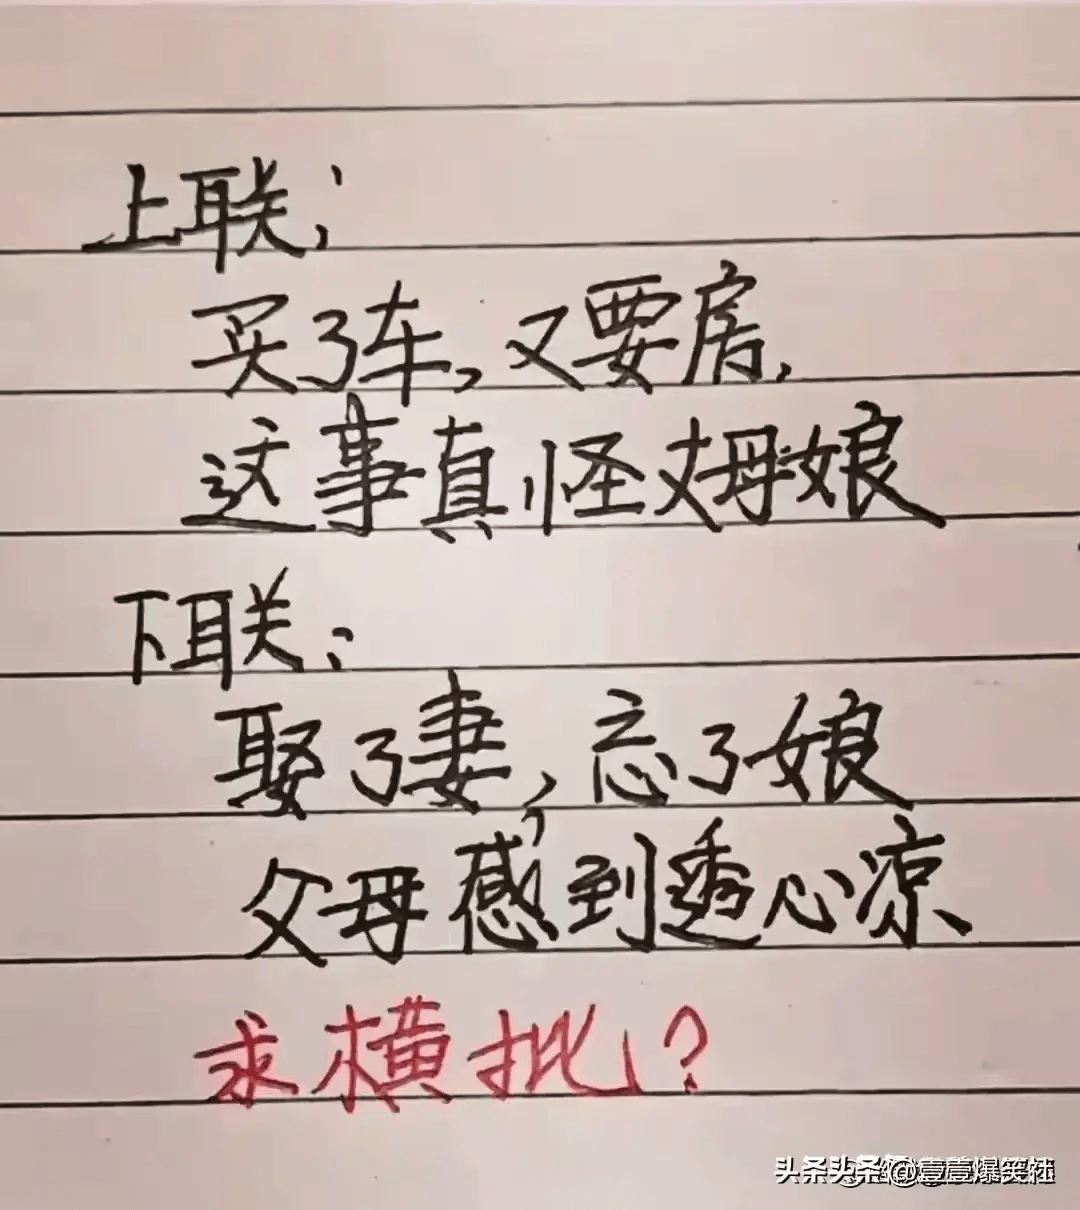 上联:
买了车,又要房,
这事真怪丈母娘
下联:
娶了妻,忘了娘
父母感到透心凉
求横批?
头条 @壹壹爆笑社